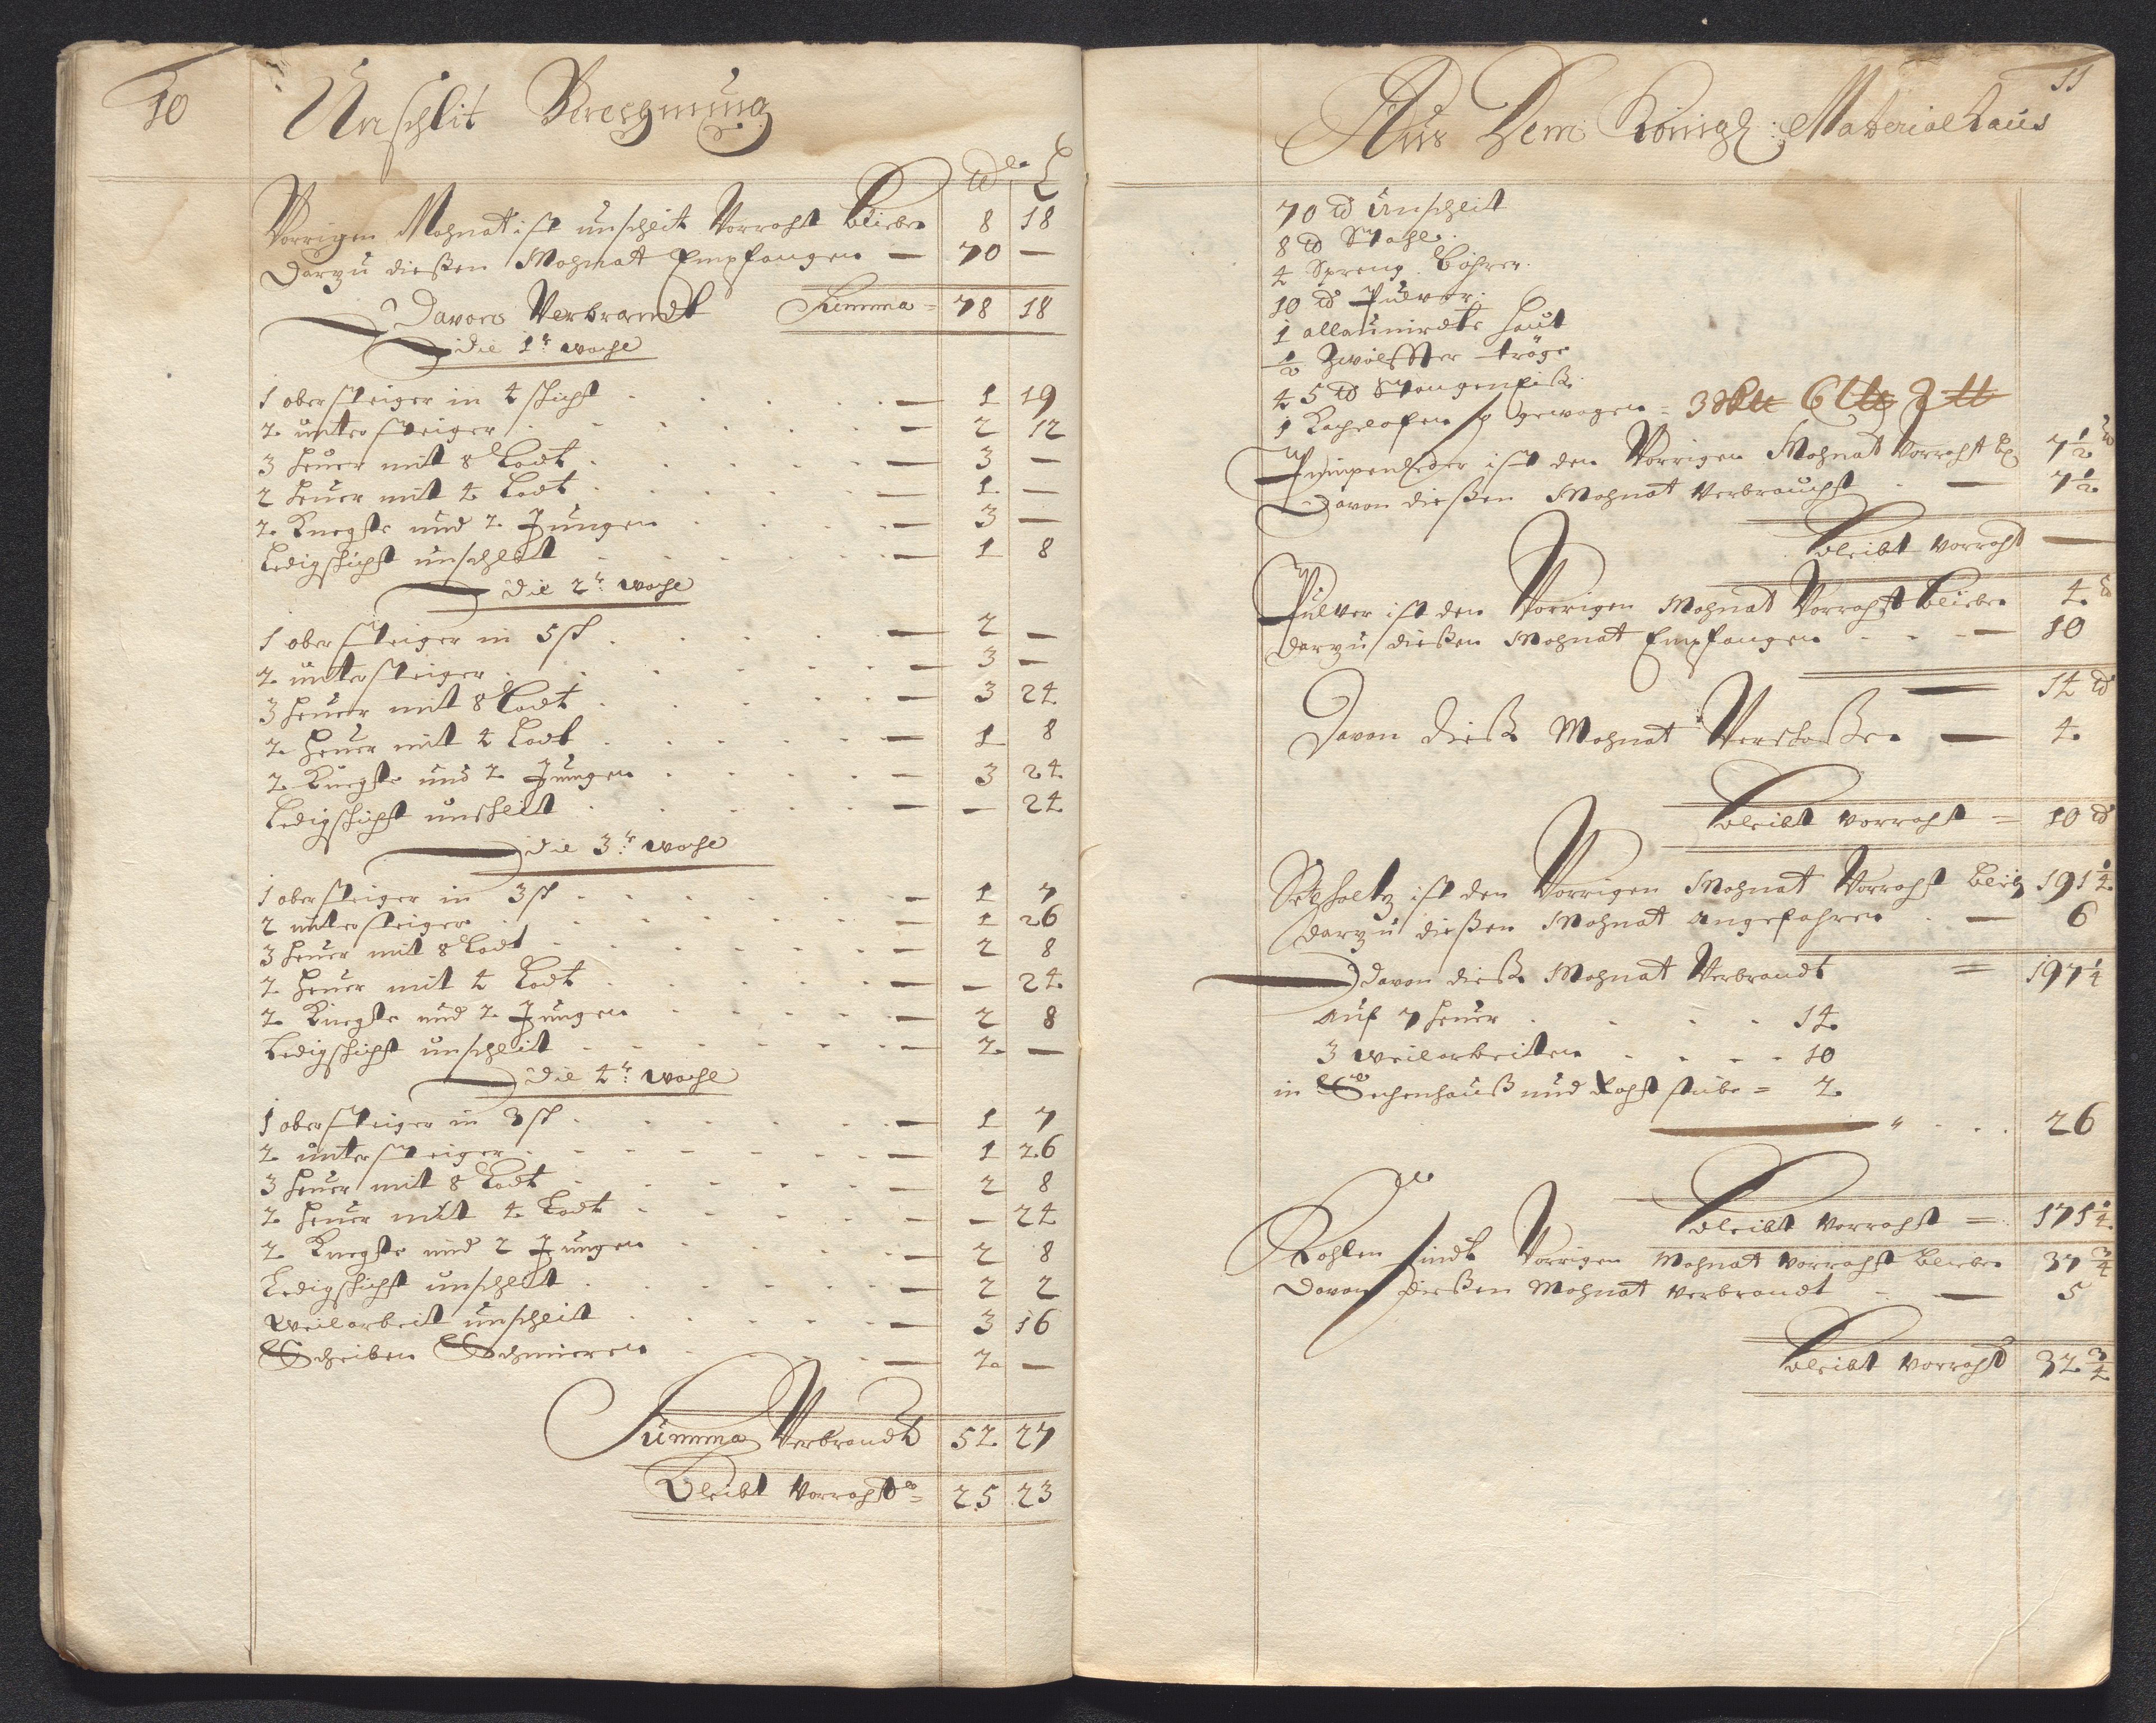 10
Unschlit Berechnung
℔ L
Vorrigen Mohnat ist unschlit Vorraht blieben 8 18
Darzu dießen Mohnat Empfangen — 70 —
Davon Verbrandt Summa = 78 18
Die 1te woche
1 obersteiger in 4 schicht — 1 19
2 untersteiger — 2 12
3 heuer mit 8 Lodt — 3 —
2 heuer mit 4 Lodt — 1 —
2 Knegste und 2 Jungen — 3 —
Ledigschicht unschlit — 1 8
Die 2te woche
1 obersteiger in 5 sch — 2 —
2 untersteiger — 3 —
3 heuer mit 8 Lodt — 3 24
2 heuer mit 4 Lodt — 1 8
2 Knegste und 2 Jungen — 3 24
Ledigschicht unschlit — — 24
Die 3te woche
1 obersteiger in 3 sch — 1 7
2 untersteiger — 1 26
3 heuer mit 8 Lodt — 2 8
2 heuer mit 4 Lodt — — 24
2 Knegste und 2 Jungen — 2 8
Ledigschicht unschleit — 2 —
Die 4te woche
1 obersteiger in 3 sch — 1 7
2 untersteiger — 1 26
3 heuer mit 8 Lodt — 2 8
2 heuer mit 4 Lodt — — 24
2 Knegste und 2 Jungen — 2 8
Ledigschicht unschlit — 2 2
Weilarbeit unschleit — 3 16
Scheiben Schmieren — 2 —
Summa Verbrandt 52 27
Bleibt Vorraht = 25 23
11
Aus Dem Königl: Materialhaus
70 ℔ Unschleit
8 ℔ Stahl
4 Spreng Bohrer
10 ℔ Pulver
1 allaunirdte haut
1/2 Zwölffter tröge
45 ℔ Stangeneiß
1 Kachelofen so gewogen =
Pumpenleder ist den Vorrigen Mohnat Vorraht bl 7 1/2 ℔
Davon dießen Mohnat Verbraucht — 7 1/2
Bleibt Vorraht —
Pulver ist den Vorrigen Mohnat Vorraht blieben 4 ℔
darzu dießen Mohnat Empfangen — 10
— 14 ℔
Davon dieße Mohnat Verschoßen — 4
Bleibt Vorraht = 10 ℔
Setzholtz ist den Vorrigen Mohnat Vorraht blieb 191 1/4
darzu dießen Mohnat angefahren — 6
Davon dieße Mohnat Verbrandt = 197 1/4
Auf 7 heuer 14
3 Weilarbeiten 10
in Zechenhauß und Pochstube = 2
26
Bleibt Vorraht = 171 1/4
Kohlen sindt Vorrigen Mohnat Vorraht blieben 37 3/4
Davon dießen Mohnat Verbrandt — 5
Bleibt Vorraht 32 3/4